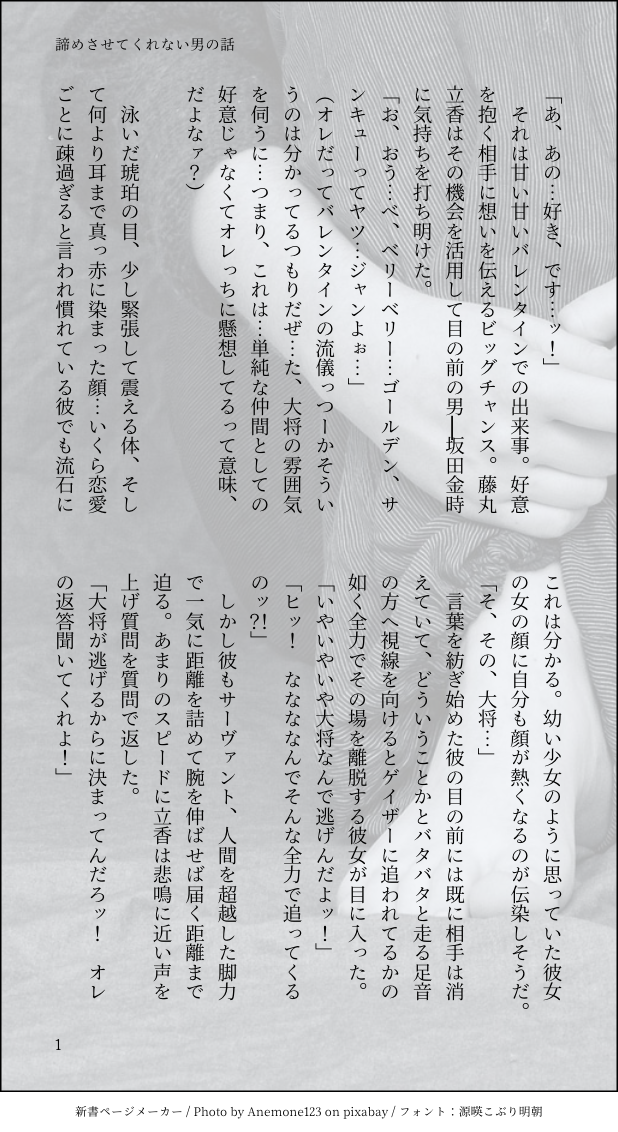 諦めさせてくれない男の話
「あ、あの…好き、です…ッ！」
　それは甘い甘いバレンタインでの出来事。好意
を抱く相手に想いを伝えるビッグチャンス。藤丸
立香はその機会を活用して目の前の男──坂田金時
に気持ちを打ち明けた。
「お、おう…べ、ベリーベリー…ゴールデン、サ
ンキューってヤツ…ジャンよぉ…」
（オレだってバレンタインの流儀っつーかそうい
うのは分かってるつもりだぜ…た、大将の雰囲気
を伺うに…つまり、これは…単純な仲間としての
好意じゃなくてオレっちに懸想してるって意味、
だよなァ？）
　泳いだ琥珀の目、少し緊張して震える体、そし
て何より耳まで真っ赤に染まった顔…いくら恋愛
ごとに疎過ぎると言われ慣れている彼でも流石に
これは分かる。幼い少女のように思っていた彼女
の女の顔に自分も顔が熱くなるのが伝染しそうだ。
「そ、その、大将…」
　言葉を紡ぎ始めた彼の目の前には既に相手は消
えていて、どういうことかとバタバタと走る足音
の方へ視線を向けるとゲイザーに追われてるかの
如く全力でその場を離脱する彼女が目に入った。
「いやいやいや大将なんで逃げんだよッ！」
「ヒッ！　なななななんでそんな全力で追ってくる
のッ?!」
　しかし彼もサーヴァント、人間を超越した脚力
で一気に距離を詰めて腕を伸ばせば届く距離まで
迫る。あまりのスピードに立香は悲鳴に近い声を
上げ質問を質問で返した。
「大将が逃げるからに決まってんだろッ！　オレ
の返答聞いてくれよ！」
1
新書ページメーカー / Photo by Anemone123 on pixabay / フォント：源暎こぶり明朝